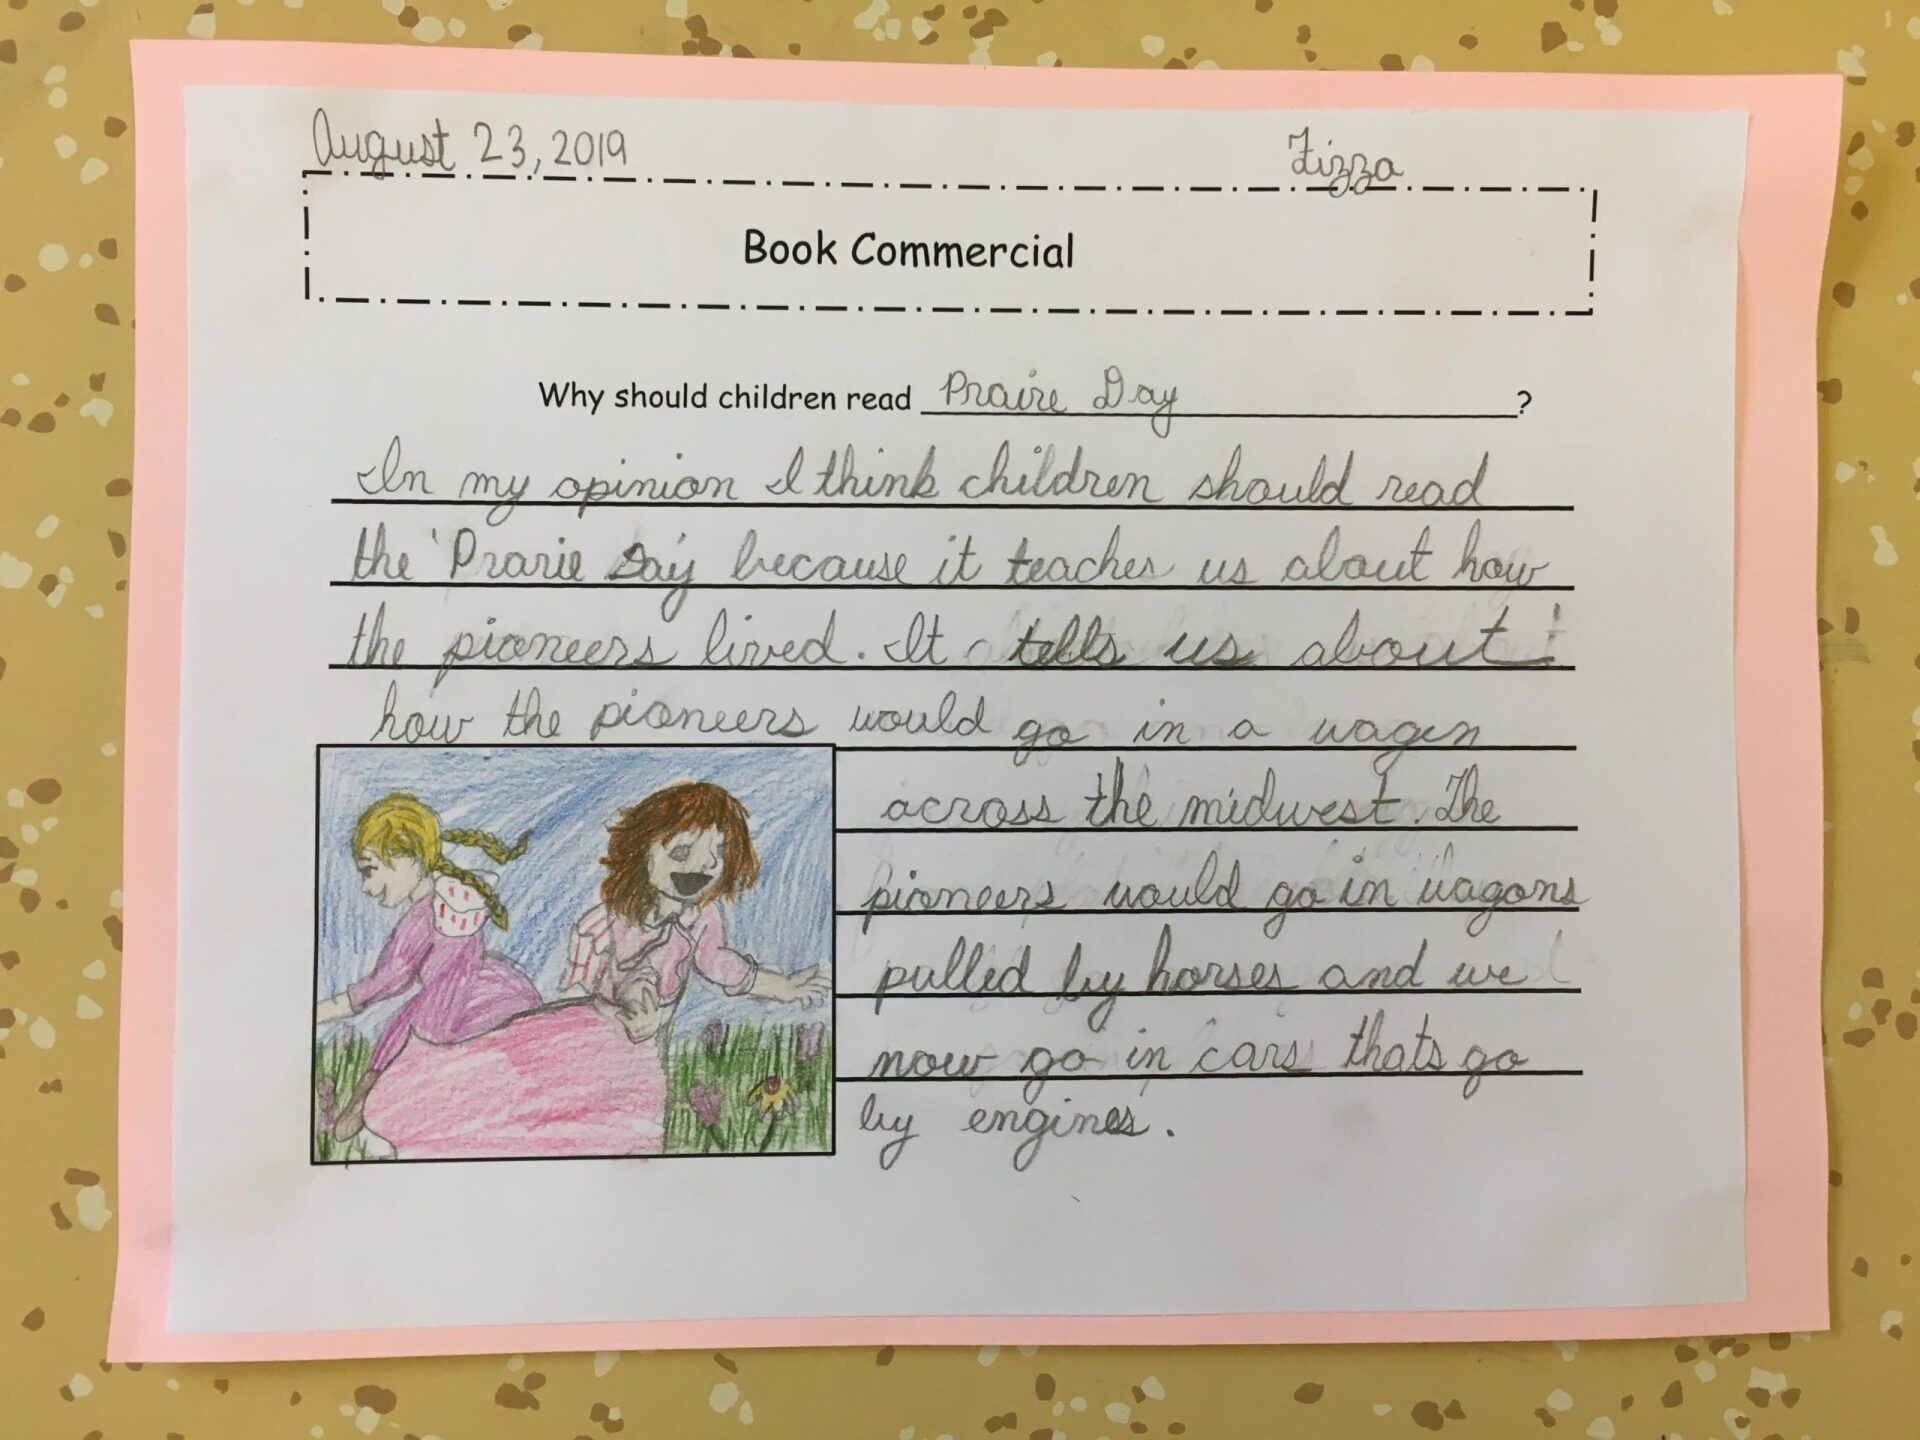 August 23, 2019 Fizza
Book Commercial
Why should children read Praire Day ?
In my opinion I think children should read
the 'Prarie Day because it teaches us about how
the pioneers lived. It tells us about
how the pioneers would go in a wagen
across the midwest. The
pioneers would go in wagons
pulled by horses and we
now go in cars thats go
by engines.